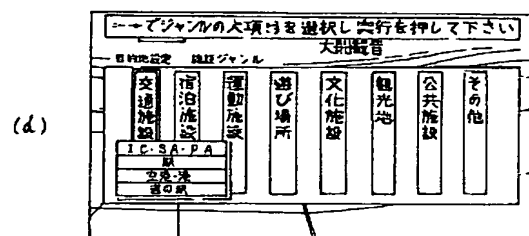 (d)
←→でジャンルの大項目を選択し実行を押して下さい
大船観音
目的地設定 施設ジャンル
交通施設
宿泊施設
運動施設
遊び場所
文化施設
観光地
公共施設
その他
IC・SA・PA
駅
空港・港
道の駅